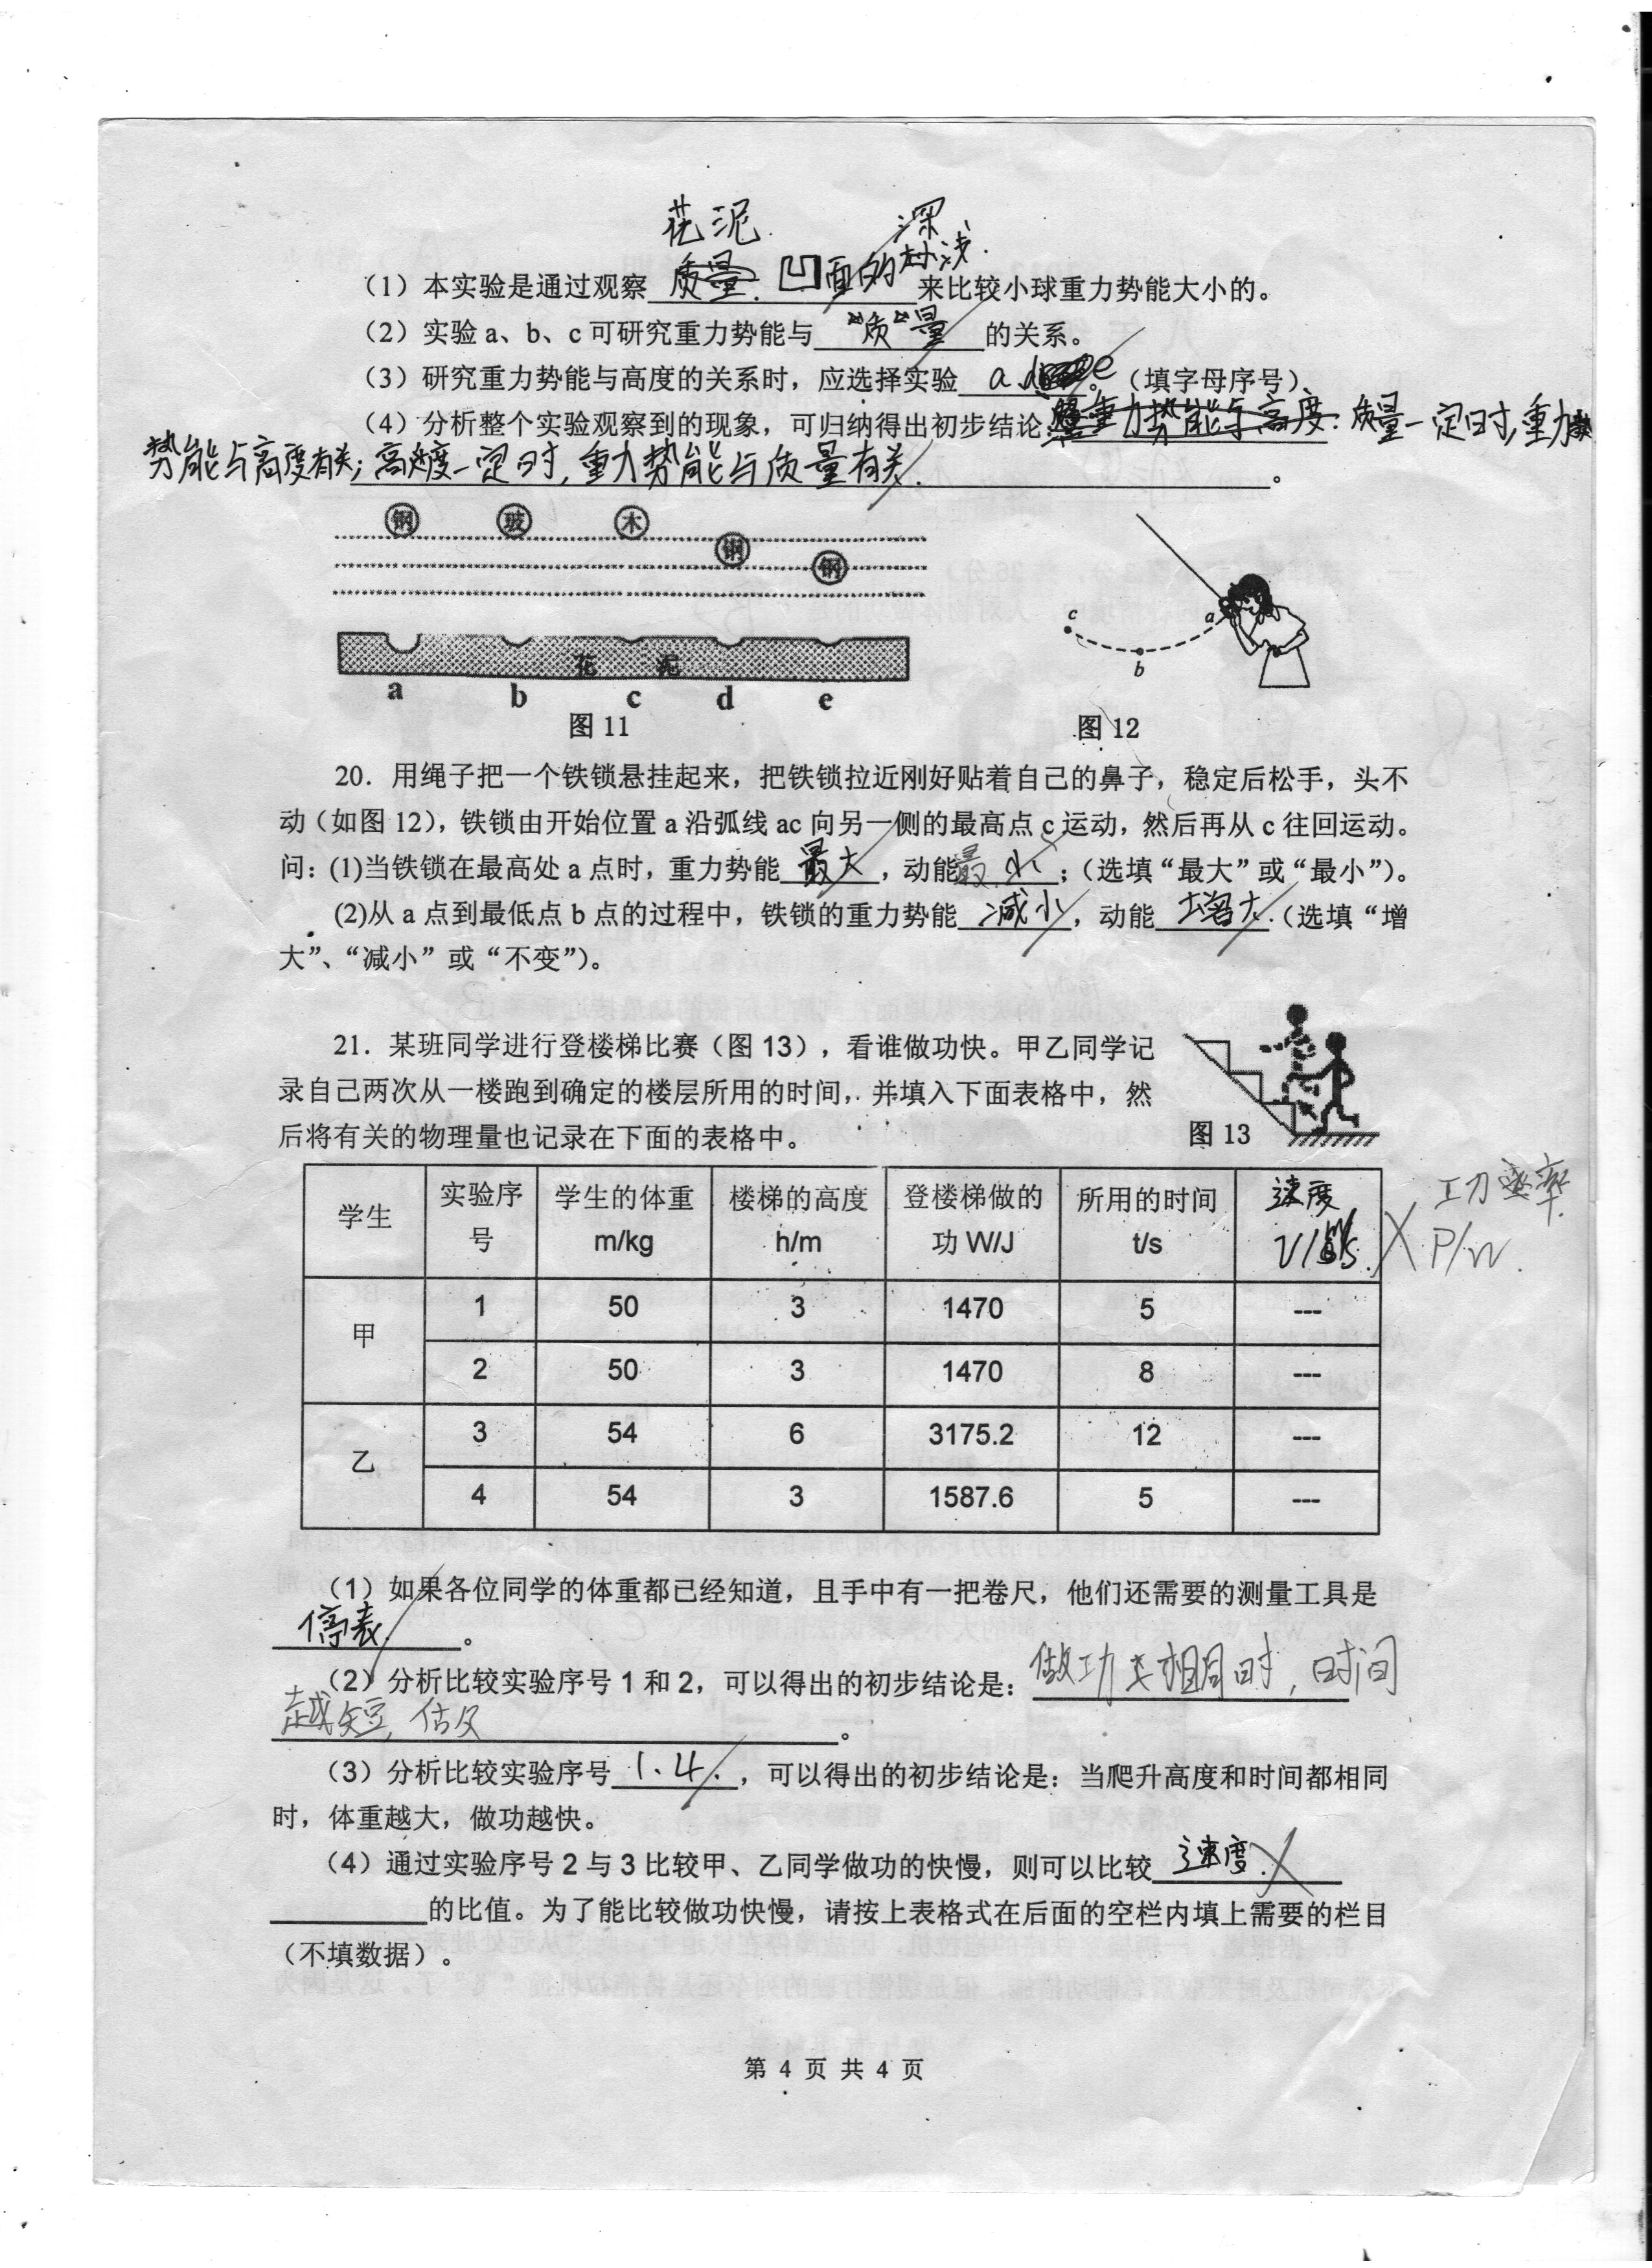 花泥 深
（1）本实验是通过观察 质量. 凹面的 浅. 来比较小球重力势能大小的。
（2）实验 a、b、c 可研究重力势能与 “质”量 的关系。
（3）研究重力势能与高度的关系时，应选择实验 a d e 。（填字母序号）
（4）分析整个实验观察到的现象，可归纳得出初步结论：重力势能与高度: 质量一定时,重力
势能与高度有关; 高度一定时,重力势能与质量有关. 。
钢 玻 木
钢 钢
花 泥
a b c d e
图 11
c a
b
图 12
20．用绳子把一个铁锁悬挂起来，把铁锁拉近刚好贴着自己的鼻子，稳定后松手，头不
动（如图 12），铁锁由开始位置 a 沿弧线 ac 向另一侧的最高点 c 运动，然后再从 c 往回运动。
问：(1)当铁锁在最高处 a 点时，重力势能 最大 ，动能 最小 ；（选填“最大”或“最小”）。
(2)从 a 点到最低点 b 点的过程中，铁锁的重力势能 减小 ，动能 增大 .（选填“增
大”、“减小”或“不变”）。
21．某班同学进行登楼梯比赛（图 13），看谁做功快。甲乙同学记
录自己两次从一楼跑到确定的楼层所用的时间，并填入下面表格中，然
后将有关的物理量也记录在下面的表格中。
图 13
学生 实验序号 学生的体重 m/kg 楼梯的高度 h/m 登楼梯做的功 W/J 所用的时间 t/s 速度 功率 P/w.
甲 1 50 3 1470 5 ---
2 50 3 1470 8 ---
乙 3 54 6 3175.2 12 ---
4 54 3 1587.6 5 ---
（1）如果各位同学的体重都已经知道，且手中有一把卷尺，他们还需要的测量工具是
停表. 。
（2）分析比较实验序号 1 和 2，可以得出的初步结论是： 做功 相同时, 时间
越短, 。
（3）分析比较实验序号 1、4. ，可以得出的初步结论是：当爬升高度和时间都相同
时，体重越大，做功越快。
（4）通过实验序号 2 与 3 比较甲、乙同学做功的快慢，则可以比较 速度.
的比值。为了能比较做功快慢，请按上表格式在后面的空栏内填上需要的栏目
（不填数据）。
第 4 页 共 4 页